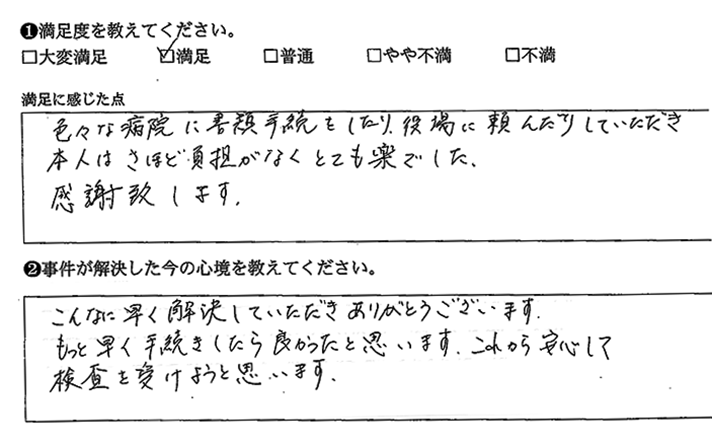 ❶満足度を教えてください。
□大変満足 ☑満足 □普通 □やや不満 □不満
満足に感じた点
色々な病院に書類手続をしたり、役場に頼んだりしていただき
本人はさほど負担がなくとても楽でした、
感謝致します。
❷事件が解決した今の心境を教えてください。
こんなに早く解決していただきありがとうございます。
もっと早く手続きしたら良かったと思います。これから安心して
検査を受けようと思います。